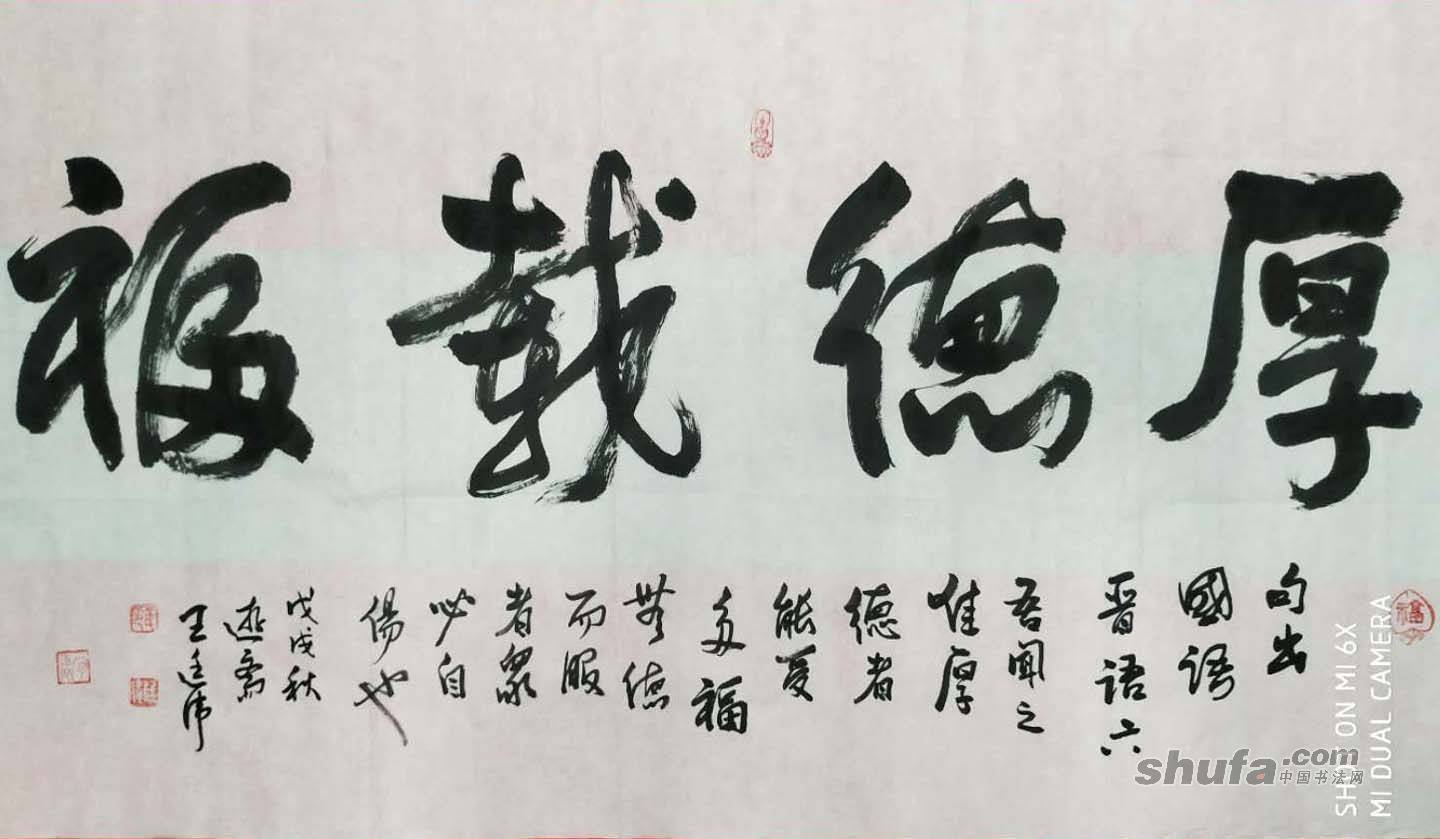 厚德載福
句出
國語
晋語六
吾聞之
唯厚
德者
能受
多福
無德
而服
者衆
必自
傷也
戊戌秋
王廷偉
福
SHOT ON MI 6X
MI DUAL CAMERA
shufa.com
中国书法网